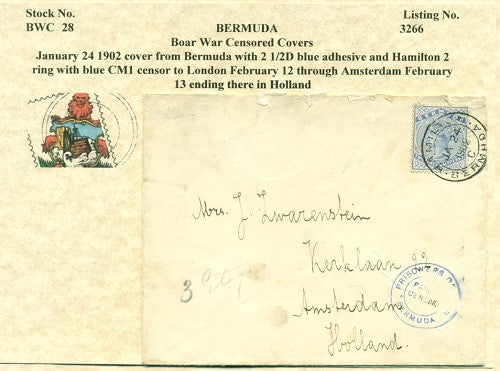 Stock No.
BWC 28
BERMUDA
Listing No.
3266
Boar War Censored Covers
January 24 1902 cover from Bermuda with 2 1/2D blue adhesive and Hamilton 2
ring with blue CM1 censor to London February 12 through Amsterdam February
13 ending there in Holland
HAMILTON BERMUDA
JA 24
Mrs. J. Zwarenstein
Kerklaan 99
Amsterdam
Holland.
3
PRISONERS OF
PASSED
CENSOR
BERMUDA